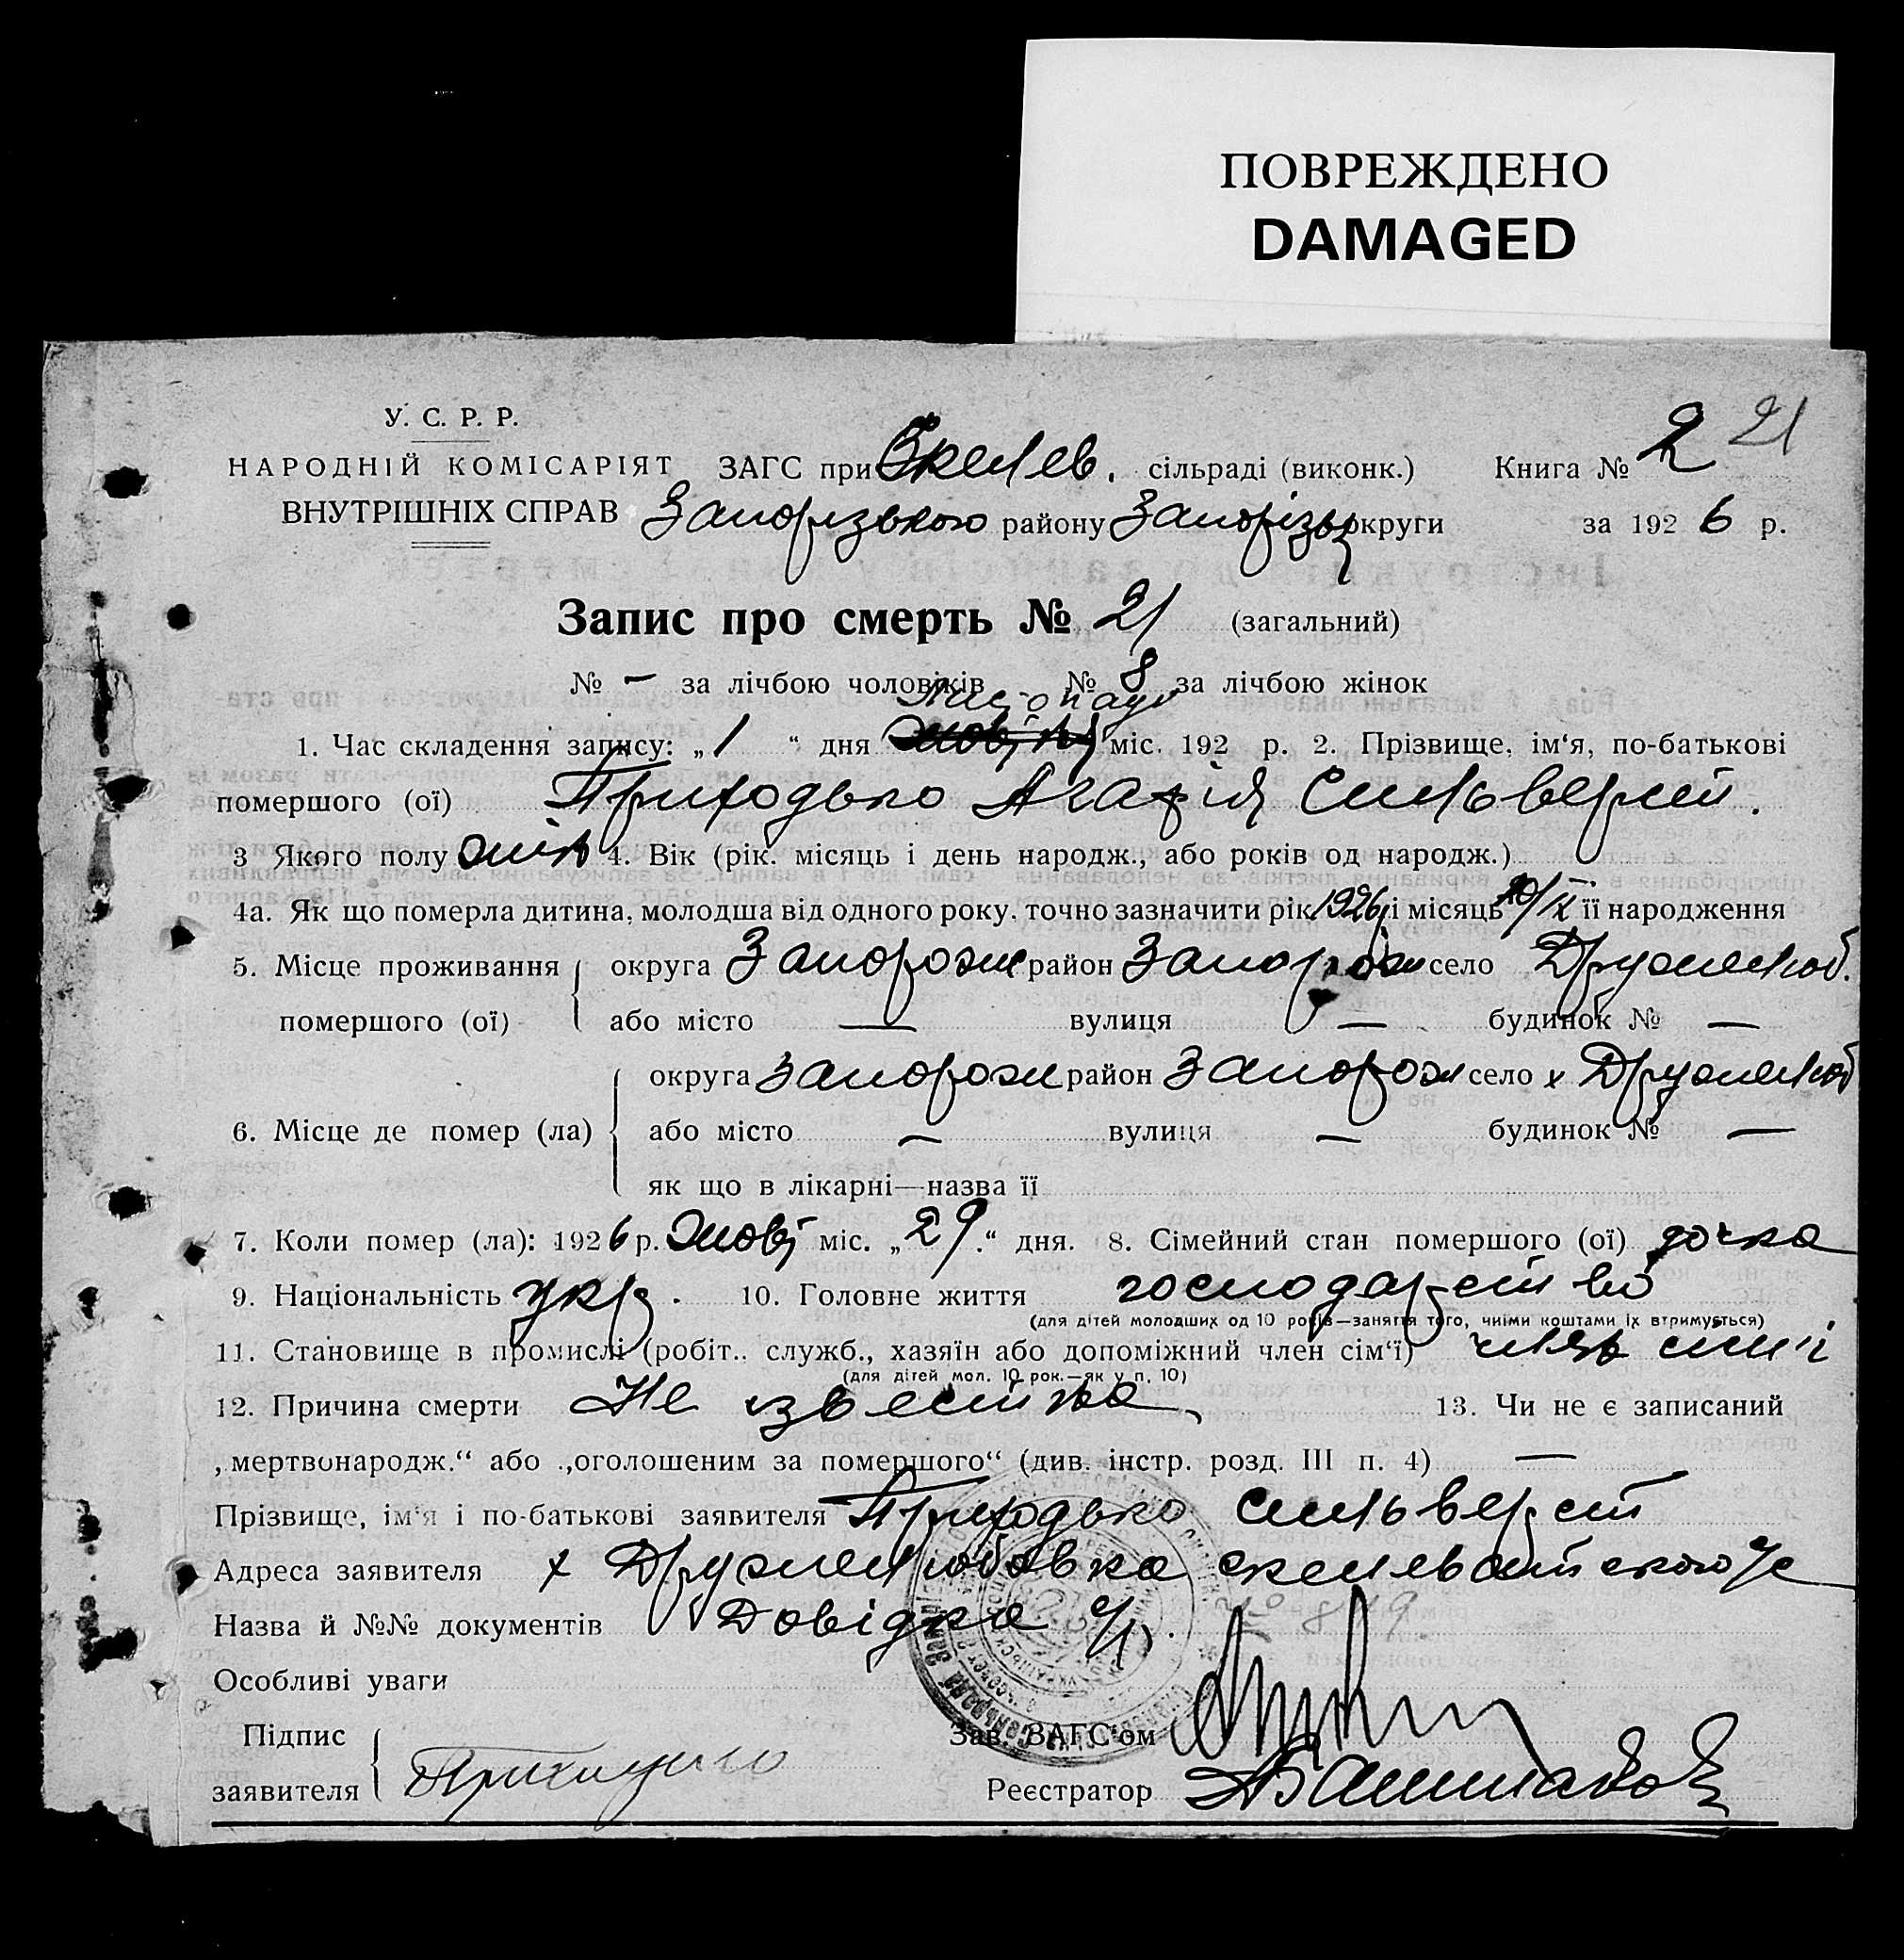 ПОВРЕЖДЕНО
DAMAGED
21
У. С. Р. Р.
НАРОДНІЙ КОМІСАРІЯТ ЗАГС при Скелев. сільраді (виконк.) Книга № 2
ВНУТРІШНІХ СПРАВ Запорізького району Запорізьк округи за 1926 р.
Запис про смерть № 21 (загальний)
№ — за лічбою чоловіків № 8 за лічбою жінок
Листопаду
1. Час складення запису: „1“ дня міс. 192 р. 2. Прізвище, ім‘я, по-батькові
помершого (ої) Приходько Агафія Сильверст.
3 Якого полу жін 4. Вік (рік. місяць і день народж., або років од народж.)
4а. Як що померла дитина, молодша від одного року, точно зазначити рік 1926 і місяць 20/IX її народження
5. Місце проживання округа Запорож район Запорож село Дружелюб.
помершого (ої) або місто — вулиця — будинок № —
округа Запорож район Запорож село х Дружелюб
6. Місце де помер (ла) або місто — вулиця — будинок № —
як що в лікарні—назва її
7. Коли помер (ла): 1926 р. Жовт міс. „29.“ дня. 8. Сімейний стан помершого (ої) дочка
9. Національність укр. 10. Головне життя господарство
(для дітей молодших од 10 років—заняття того, чиїми коштами їх втримується)
11. Становище в промислі (робіт.. служб., хазяїн або допоміжний член сім‘ї) член сим'ї
(для дітей мол. 10 рок.—як у п. 10)
12. Причина смерти Не звестна 13. Чи не є записаний
„мертвонародж.“ або „оголошеним за помершого“ (див. інстр. розд. III п. 4) —
Прізвище, ім‘я і по-батькові заявителя Приходько Сильверст
Адреса заявителя х Дружелюбовка скелеватского с/с
Назва й №№ документів Довідка с/р. № 819.
Особливі уваги
Підпис Зав. ЗАГС'ом
заявителя Реєстратор